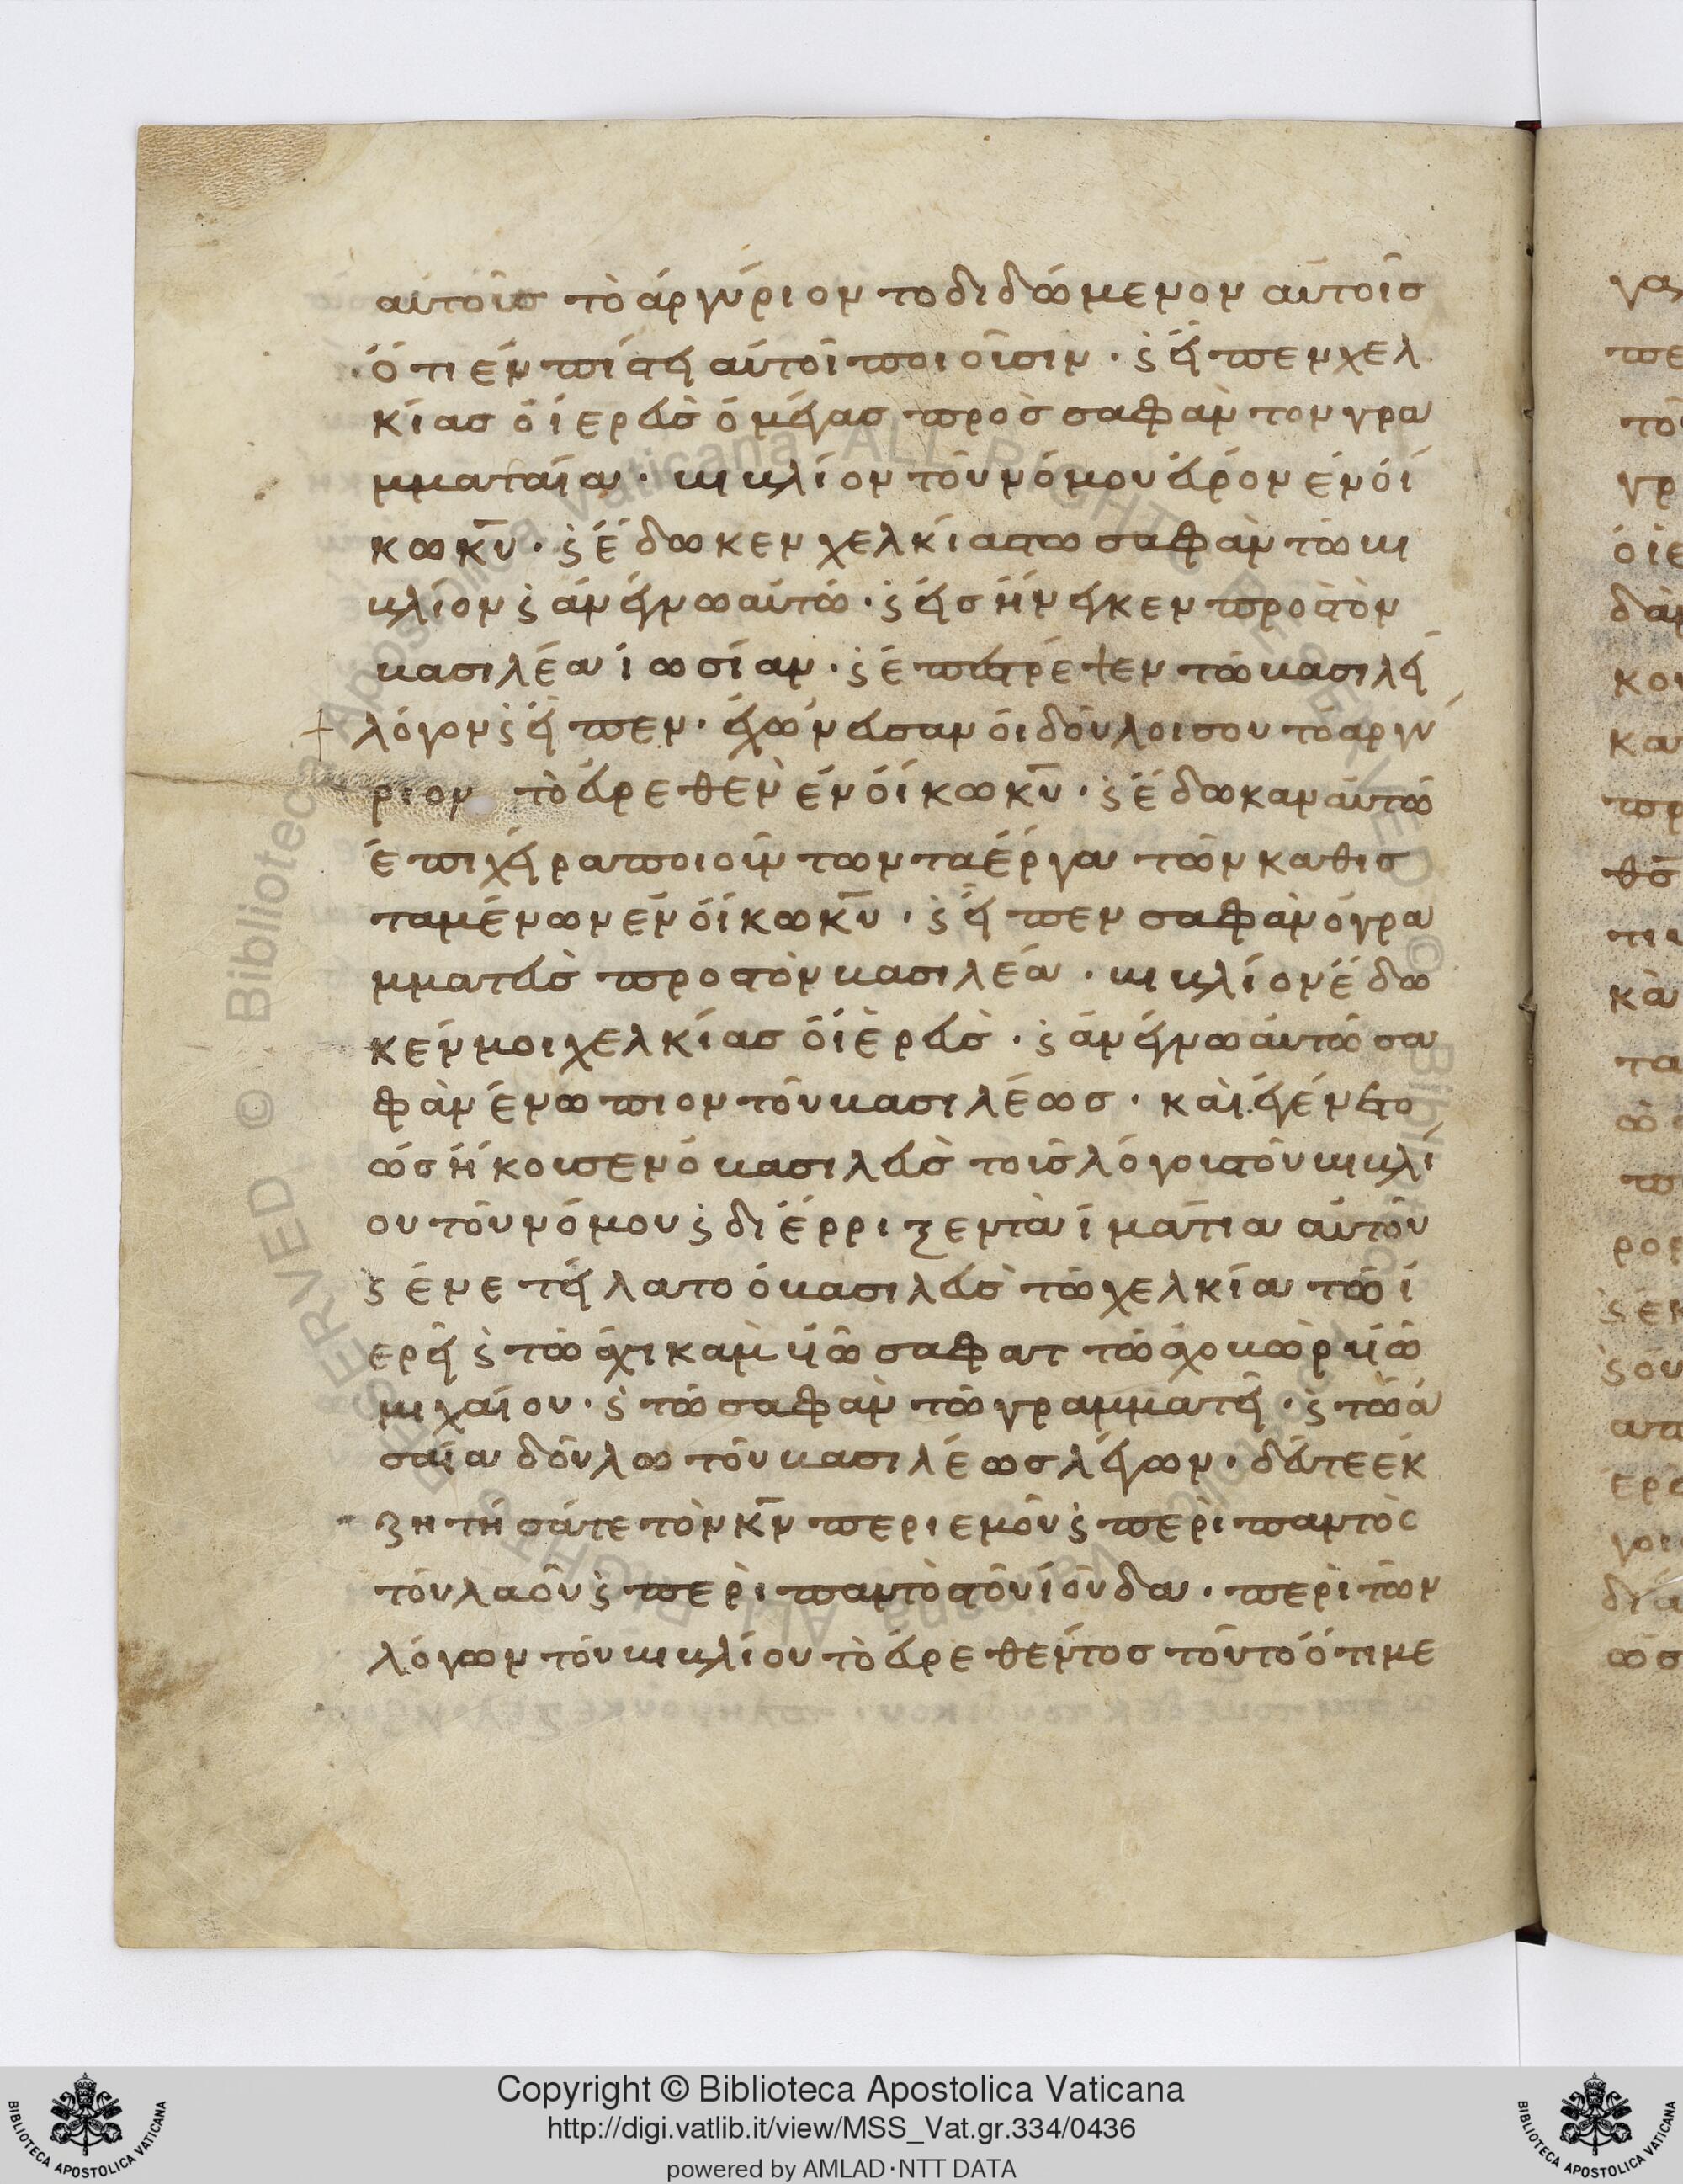 αὐτοῖσ τὸ ἀργύριον το διδώμενον αὐτοῖσ
ὅτι ἐν πίστει αὐτοὶ ποιοῦσιν · ϛ εἶπεν χελ
κίασ ὁ ἱερεὺσ ὁ μέγασ προσ σαφὰν τον γρα
μματαία · βιβλίον τοῦ νόμου εὗρον ἐν οἴ
κω κ̅υ̅ · ϛ ἔδωκεν χελκίασ τω σαφὰν τὼ βι
βλίον ϛ ἀνέγνω αὐτώ · ϛ εἰσήνεγκεν προσ τὸν
βασιλέα ἰωσίαν · ϛ ἐπέστρεψεν τῶ βασιλεῖ
λόγον ϛ εἶπεν · ἐχώνευσαν οἱ δοῦλοι σου τὸ ἀργύ
ριον τὸ εὑρεθὲν ἐν οἴκω κ̅υ̅ · ϛ ἔδωκαν αὐτῶ
ἐπι χεῖρα ποιούντων τα ἔργα τῶν καθισ
ταμένων ἐν οἴκω κ̅υ̅ · ϛ εἶπεν σαφὰν ὁ γρα
μματεὺσ προσ τὸν βασιλέα · βιβλίον ἔδω
κέν μοι χελκίασ ὁ ἱερεὺσ · ϛ ἀνέγνω αὐτῶ σα
φὰν ἐνώπιον τοῦ βασιλέωσ · καὶ ἐγένετο
ὡσ ἤκουσεν ὁ βασιλεὺσ τοῖσ λόγοισ τοῦ βιβλί
ου τοῦ νόμου ϛ διέρριξεν τὰ ἱμάτια αὐτοῦ
ϛ ἐνετείλατο ὁ βασιλεὺσ τῶ χελκία τῶ ἱ
ερεῖ ϛ τῶ ἀχικαμ ὑϊῶ σαφατ τῶ ἀχοβὼρ ὑϊῶ
μιχαίου · ϛ τῶ σαφὰν τῶ γραμματεῖ · ϛ τῶ ἀ
σαία δούλω τοῦ βασιλέωσ λέγων · δεῦτε ἐκ
ζητήσατε τὸν κ̅ν̅ περι ἐμοῦ ϛ περὶ παντὸς
τοῦ λαοῦ ϛ περὶ παντὸσ τοῦ ἰούδα · περὶ τῶν
λόγων τοῦ βιβλίου τὸ εὑρεθέντοσ τούτο ὅτι με
Copyright © Biblioteca Apostolica Vaticana
http://digi.vatlib.it/view/MSS_Vat.gr.334/0436
powered by AMLAD·NTT DATA